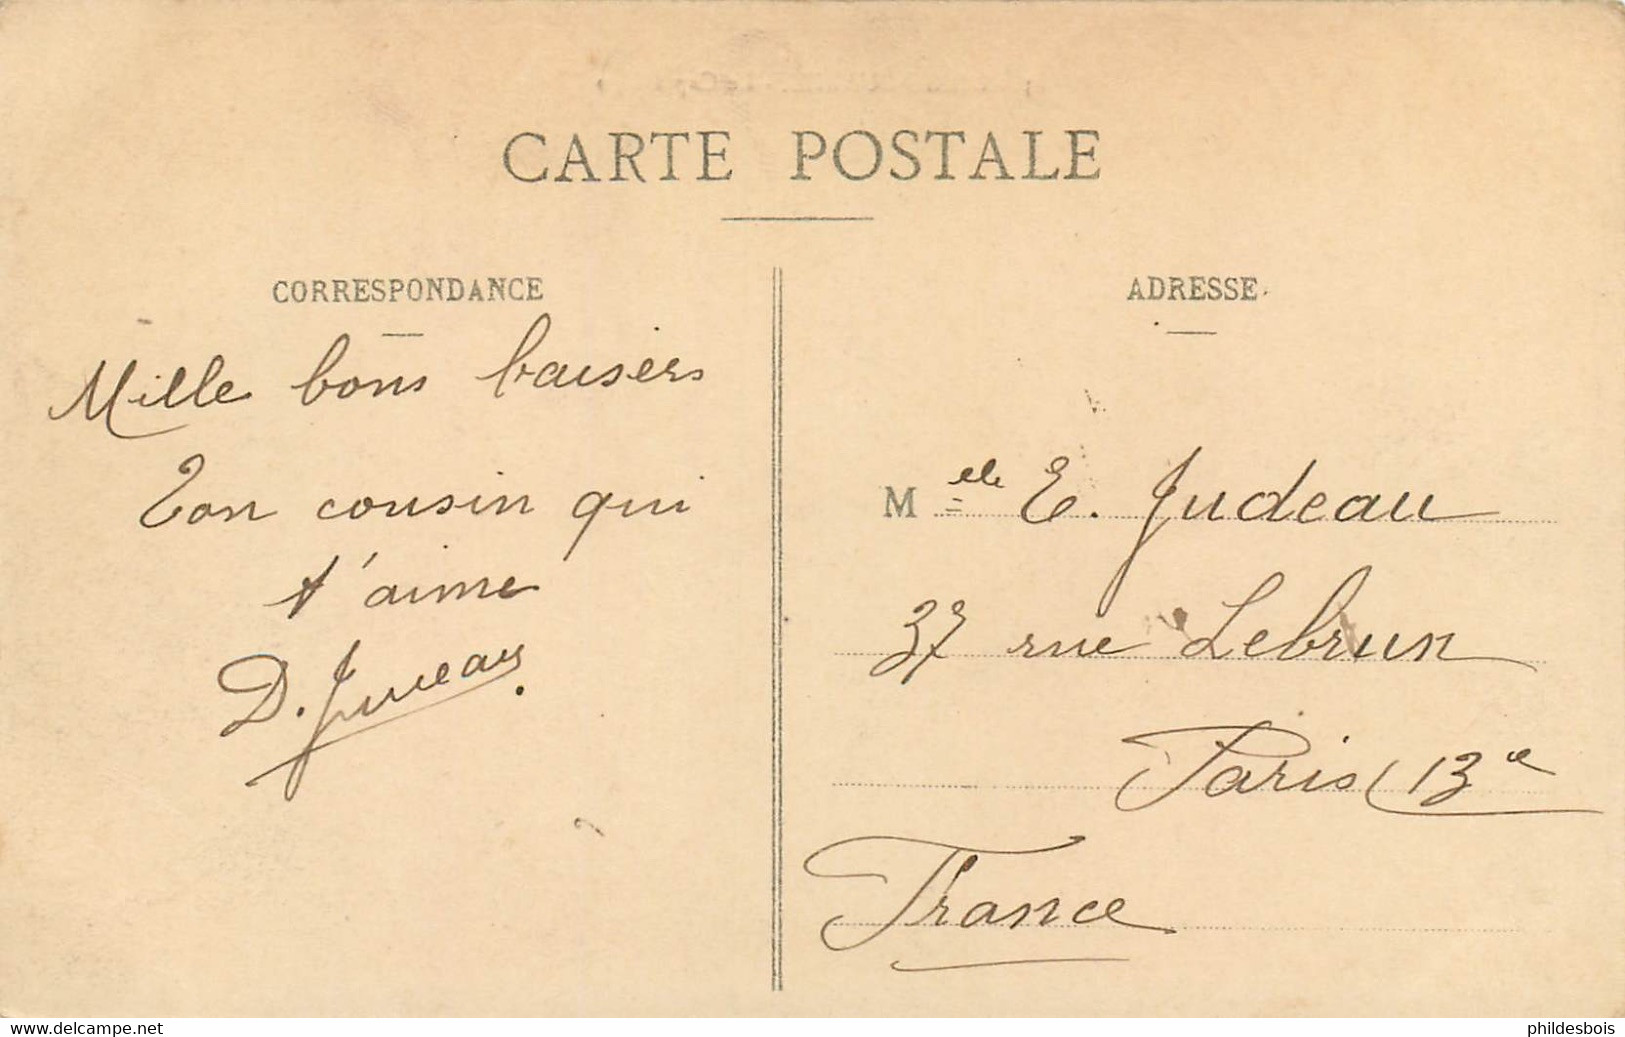 CARTE POSTALE
CORRESPONDANCE
Mille bons baisers
Ton cousin qui
t'aime
D.
ADRESSE
Melle E. Judeau
37 rue Lebrun
Paris 13e
France
www.delcampe.net
phildesbois